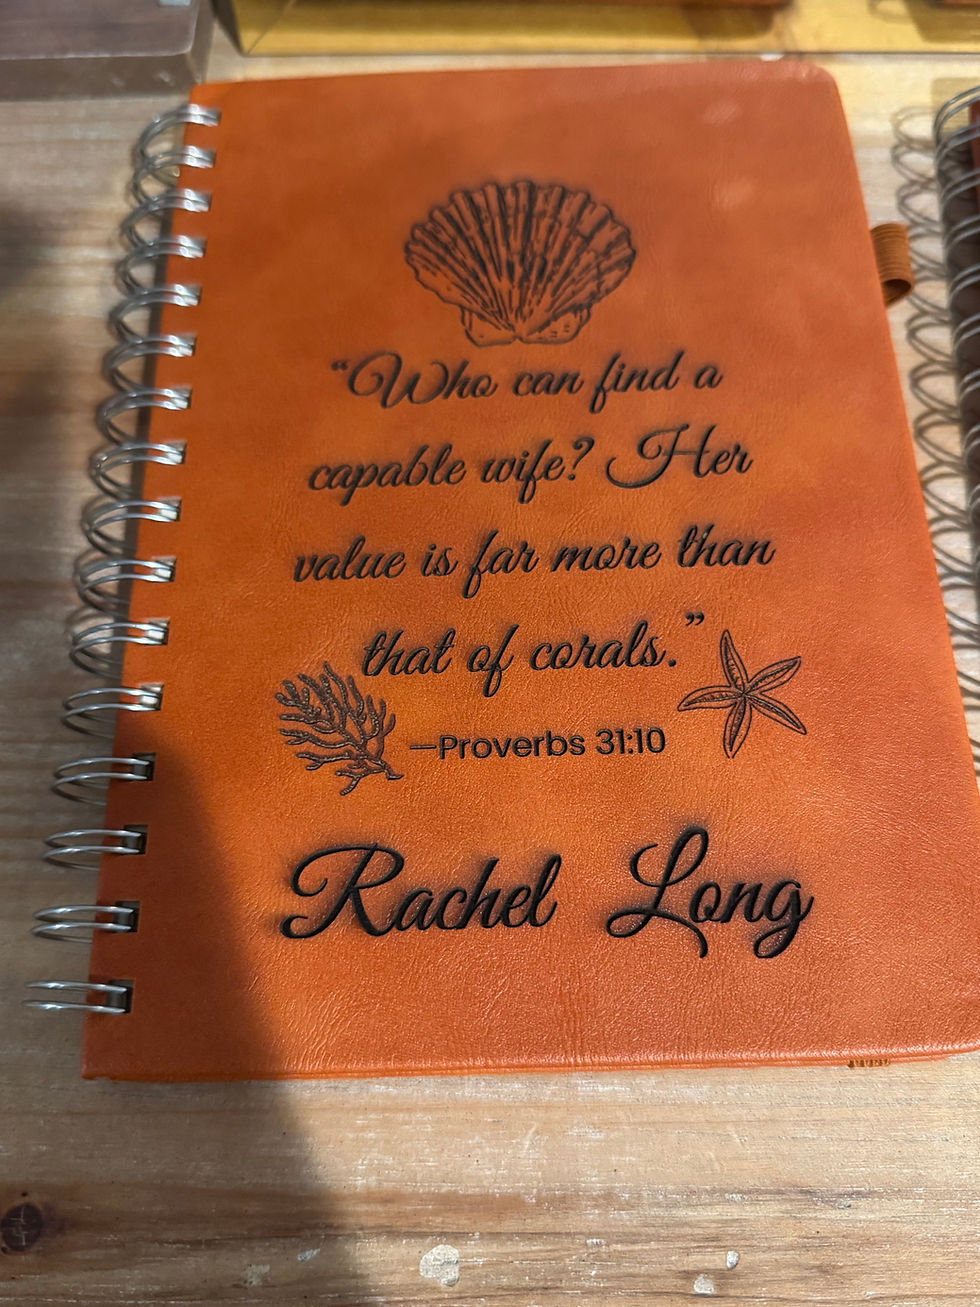 “Who can find a
capable wife? Her
value is far more than
that of corals.”
—Proverbs 31:10
Rachel Long